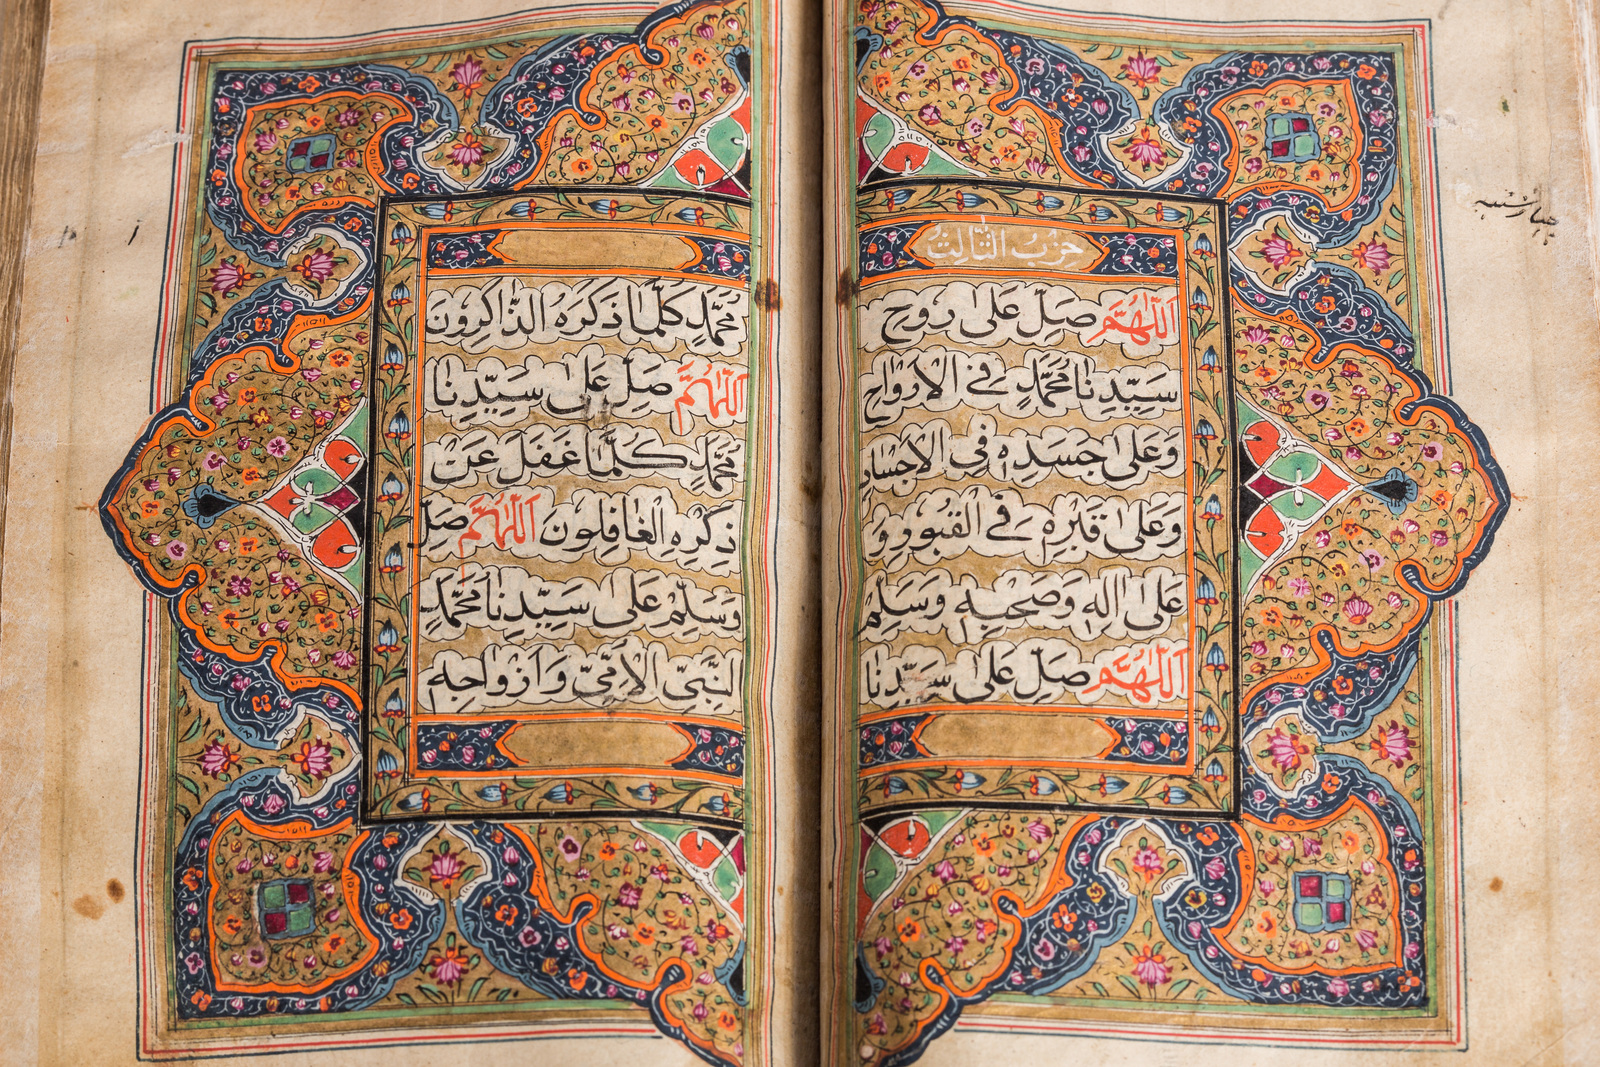 حِزْبُ الثَّالِثُ
اَللّٰهُمَّ صَلِّ عَلٰى رُوحِ
سَيِّدِنَا مُحَمَّدٍ فِي الْاَرْوَاحِ
وَعَلٰى جَسَدِهٖ فِي الْاَجْسَادِ
وَعَلٰى قَبْرِهٖ فِي الْقُبُورِ وَ
عَلٰى اٰلِهٖ وَصَحْبِهٖ وَسَلِّمْ
اَللّٰهُمَّ صَلِّ عَلٰى سَيِّدِنَا
مُحَمَّدٍ كُلَّمَا ذَكَرَهُ الذَّاكِرُونَ
اَللّٰهُمَّ صَلِّ عَلٰى سَيِّدِنَا
مُحَمَّدٍ كُلَّمَا غَفَلَ عَنْ
ذِكْرِهِ الْغَافِلُونَ اَللّٰهُمَّ صَلِّ
وَسَلِّمْ عَلٰى سَيِّدِنَا مُحَمَّدٍ
النَّبِيِّ الْاُمِّيِّ وَاَزْوَاجِهٖ